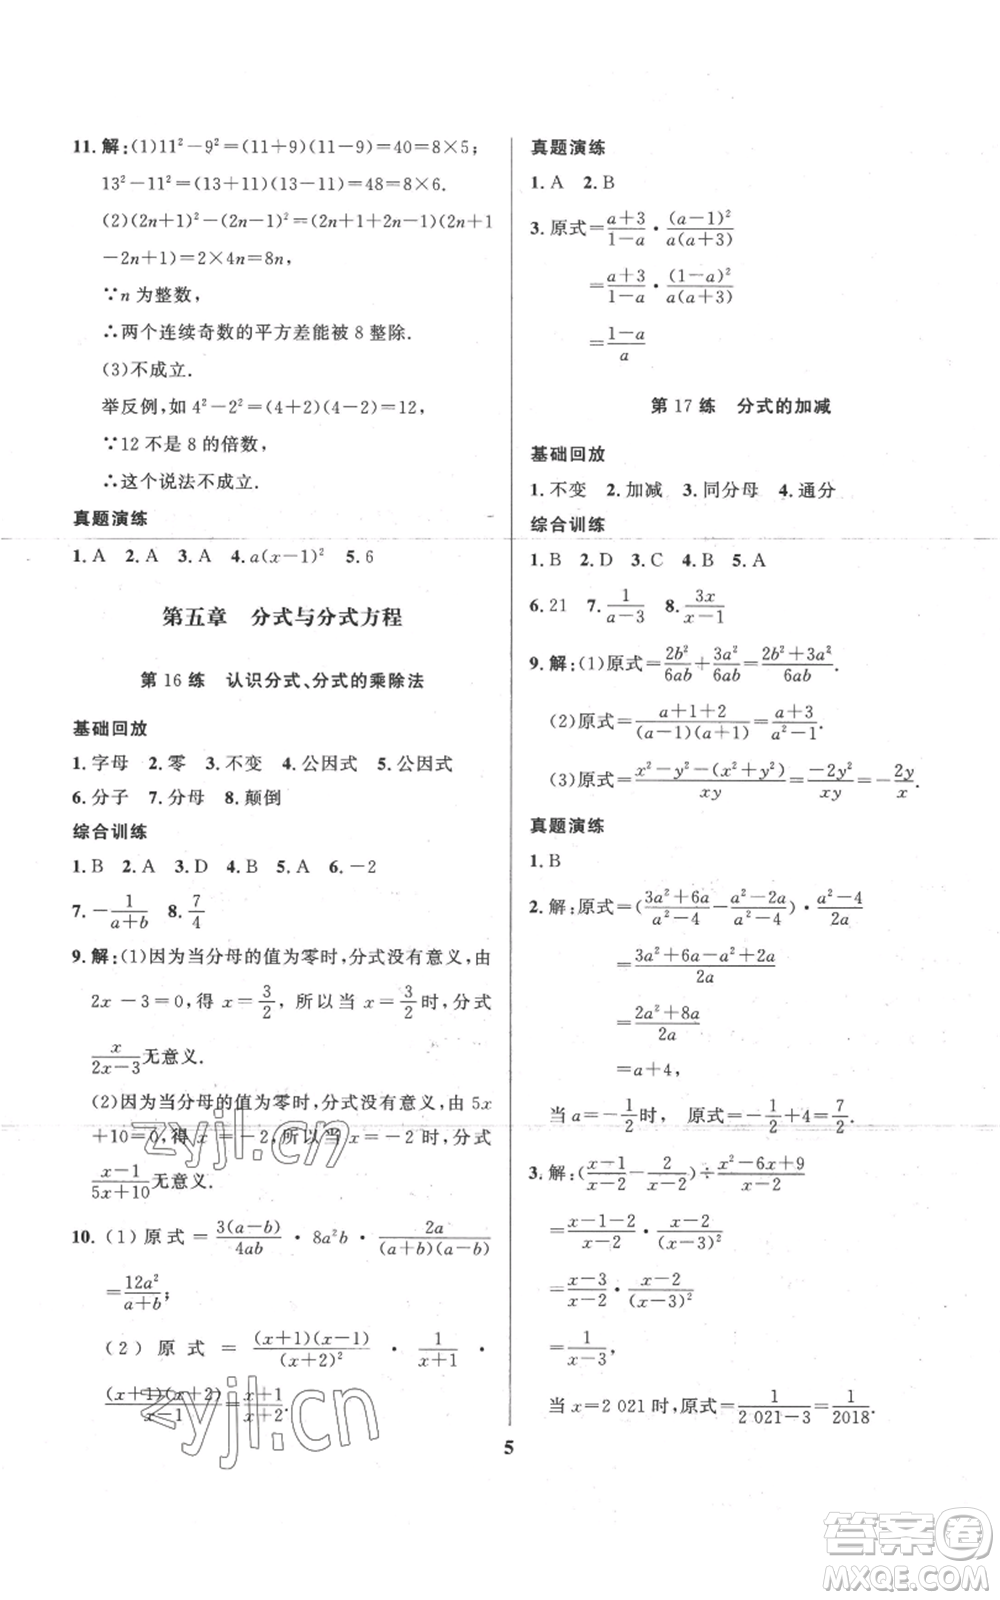 11. 解:(1)11²-9²=(11+9)(11-9)=40=8×5;
13²-11²=(13+11)(13-11)=48=8×6.
(2)(2n+1)²-(2n-1)²=(2n+1+2n-1)(2n+1
-2n+1)=2×4n=8n,
∵n 为整数,
∴两个连续奇数的平方差能被 8 整除.
(3)不成立.
举反例,如 4²-2²=(4+2)(4-2)=12,
∵12 不是 8 的倍数,
∴这个说法不成立.
真题演练
1. A 2. A 3. A 4. a(x-1)² 5. 6
第五章 分式与分式方程
第 16 练 认识分式、分式的乘除法
基础回放
1. 字母 2. 零 3. 不变 4. 公因式 5. 公因式
6. 分子 7. 分母 8. 颠倒
综合训练
1. B 2. A 3. A 4. B 5. A 6. -2
7. -1/(a+b) 8. 7/4
9. 解:(1)因为当分母的值为零时,分式没有意义,由
2x-3=0,得 x=3/2, 所以当 x=3/2时,分式
x/(2x-3)无意义.
(2)因为当分母的值为零时,分式没有意义,由 5x
+10=0,得 x=-2,所以当 x=-2 时,分式
(x-1)/(5x+10)无意义.
10. (1)原式=3(a-b)/4ab · 8a²b · 2a/((a+b)(a-b))
=12a²/(a+b);
(2)原式=(x+1)(x-1)/(x+2)² · 1/(x+1) ·
(x+1)(x+2)/(x-1)=(x+1)/(x+2).
真题演练
1. A 2. B
3. 原式=(a+3)/(1-a) · (a-1)²/(a(a+3))
=(a+3)/(1-a) · (1-a)²/(a(a+3))
=(1-a)/a
第 17 练 分式的加减
基础回放
1. 不变 2. 加减 3. 同分母 4. 通分
综合训练
1. B 2. D 3. C 4. B 5. A
6. 21 7. 1/(a-3) 8. 3x/(x-1)
9. 解:(1)原式=2b²/6ab+3a²/6ab=(2b²+3a²)/6ab.
(2)原式=(a+1+2)/((a-1)(a+1))=(a+3)/(a²-1).
(3)原式=(x²-y²-(x²+y²))/xy=-2y²/xy=-2y/x.
真题演练
1. B
2. 解:原式=((3a²+6a)/(a²-4)-(a²-2a)/(a²-4))·(a²-4)/2a
=(3a²+6a-a²+2a)/2a
=(2a²+8a)/2a
=a+4,
当 a=-1/2时, 原式=-1/2+4=7/2.
3. 解:((x-1)/(x-2)-2/(x-2))÷(x²-6x+9)/(x-2)
=(x-1-2)/(x-2)·(x-2)/(x-3)²
=(x-3)/(x-2)·(x-2)/(x-3)²
=1/(x-3),
当 x=2 021 时,原式=1/(2 021-3)=1/2018.
5
zyjl.cn
zyjl.cn
答案圈
MXQE.COM